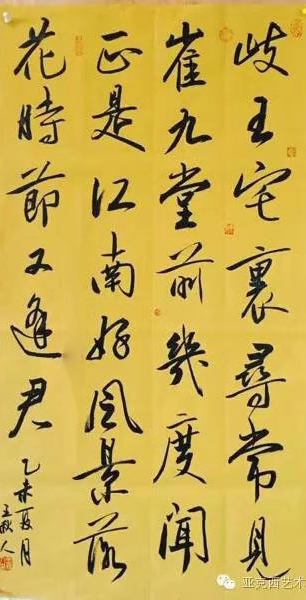 歧王宅裏尋常見
崔九堂前幾度聞
正是江南好風景落
花時節又逢君
乙未夏月
亚克西艺术